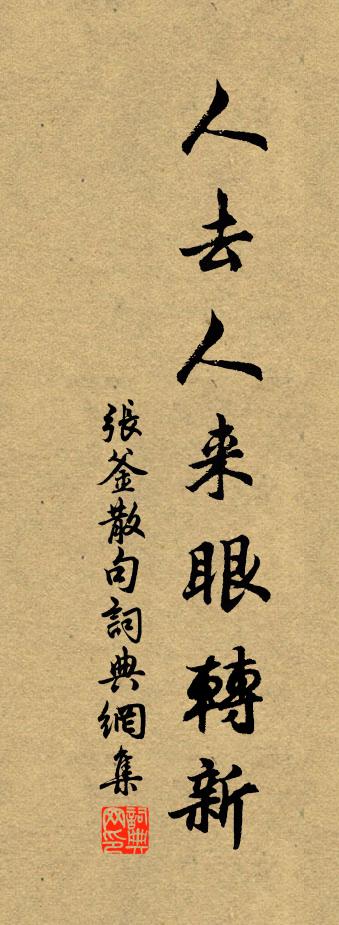 人去人来眼轉新
張釜散句詞典網集
詞典网印